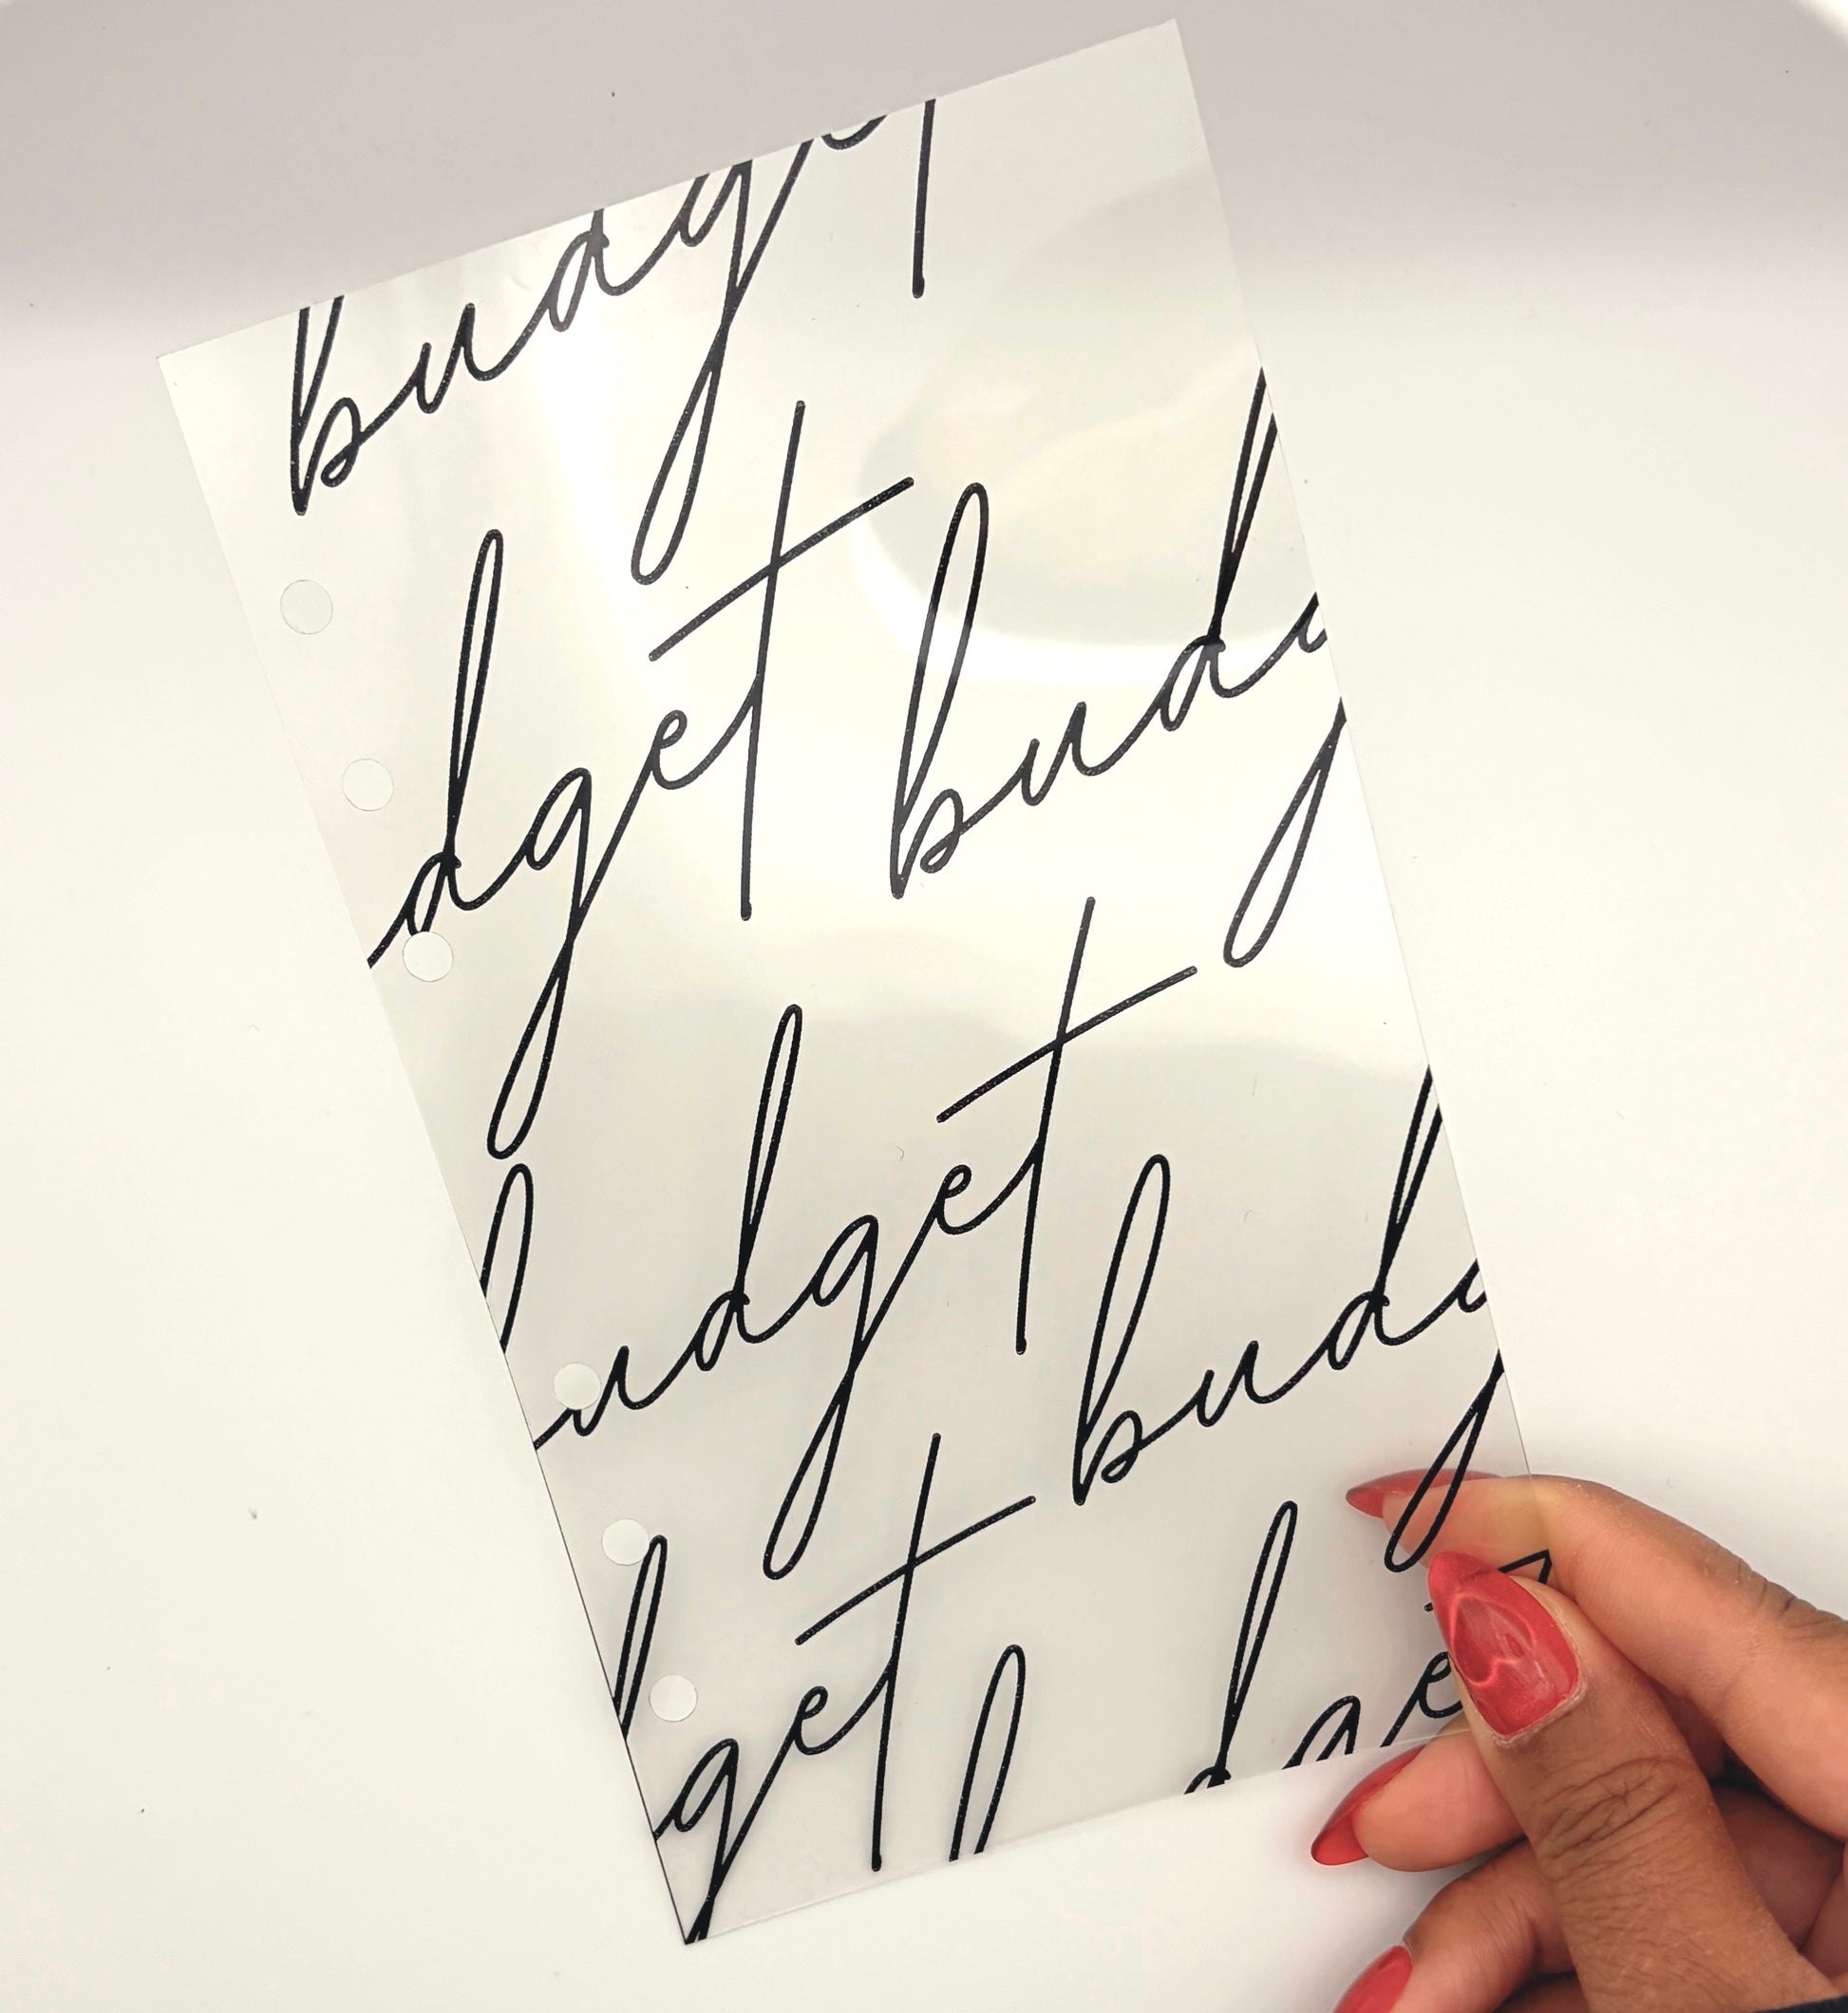 budget
dget budg
budget budg
get budget